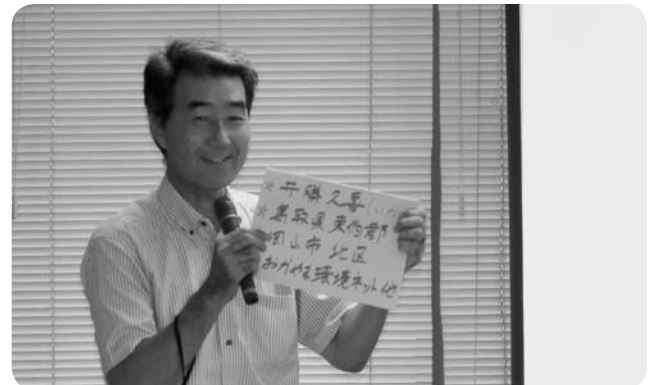 * 井勝久喜(いか
* 鳥取県東伯郡
岡山市 北区
おかやま環境ネット 他